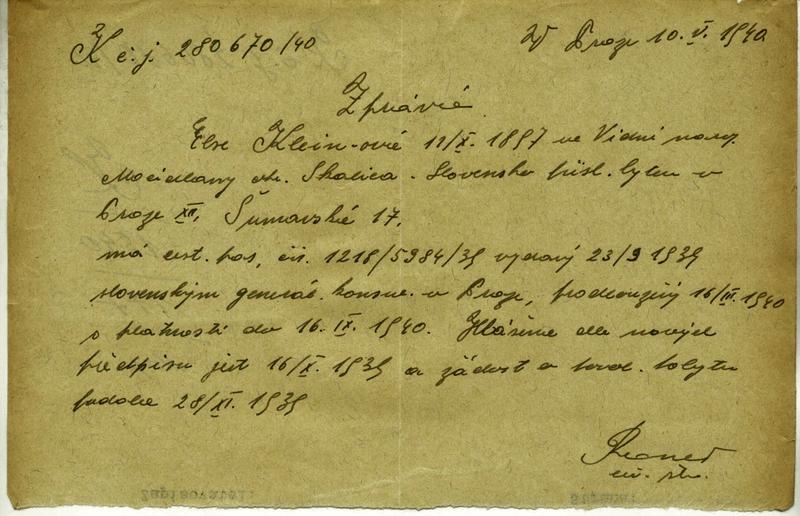 K č.j. 280670/40
V Praze 10. VI. 1940
Zprávie
Else Klein-ové 12/X. 1897 ve Vídni naroz.
okr. Skalica - Slovensko přísl. bytem v
Praze XII, Šumavská 17.
má cest. pas, čís. 1218/5984/39 vydaný 23/9 1939
slovenským generál. konsul. v Praze, prodloužený 16/III. 1940
s platností do 16. IX. 1940. Hlášena dle nových
předpisů jest 16/X. 1939 a žádost o povol. pobytu
podala 28/XI. 1939